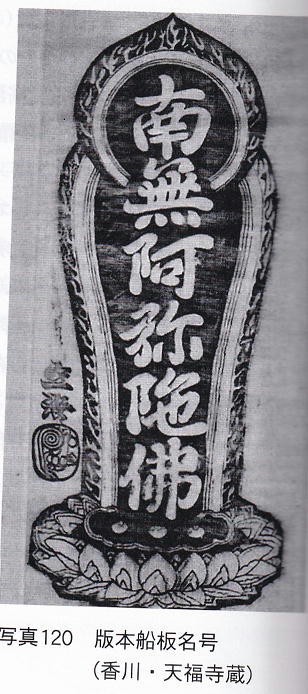 南無阿弥陀佛
写真120 版本船板名号
(香川・天福寺蔵)